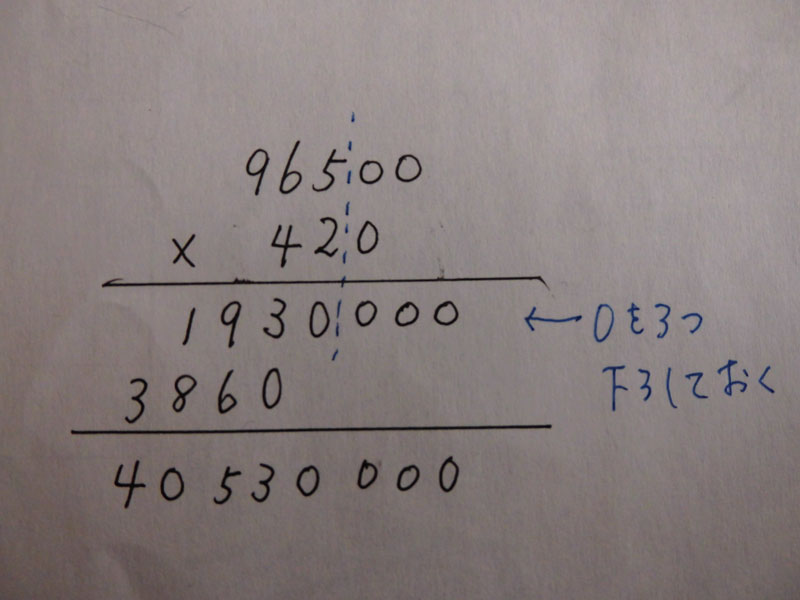 96500
× 420
1930000 ← 0を3つ
下ろしておく
3860
40530000